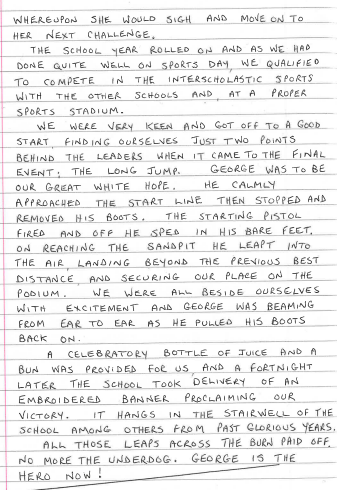 WHEREUPON SHE WOULD SIGH AND MOVE ON TO
HER NEXT CHALLENGE.
THE SCHOOL YEAR ROLLED ON AND AS WE HAD
DONE QUITE WELL ON SPORTS DAY, WE QUALIFIED
TO COMPETE IN THE INTERSCHOLASTIC SPORTS
WITH THE OTHER SCHOOLS AND, AT A PROPER
SPORTS STADIUM.
WE WERE VERY KEEN AND GOT OFF TO A GOOD
START, FINDING OURSELVES JUST TWO POINTS
BEHIND THE LEADERS WHEN IT CAME TO THE FINAL
EVENT; THE LONG JUMP. GEORGE WAS TO BE
OUR GREAT WHITE HOPE. HE CALMLY
APPROACHED THE START LINE THEN STOPPED AND
REMOVED HIS BOOTS. THE STARTING PISTOL
FIRED AND OFF HE SPED IN HIS BARE FEET.
ON REACHING THE SANDPIT HE LEAPT INTO
THE AIR, LANDING BEYOND THE PREVIOUS BEST
DISTANCE AND SECURING OUR PLACE ON THE
PODIUM. WE WERE ALL BESIDE OURSELVES
WITH EXCITEMENT AND GEORGE WAS BEAMING
FROM EAR TO EAR AS HE PULLED HIS BOOTS
BACK ON.
A CELEBRATORY BOTTLE OF JUICE AND A
BUN WAS PROVIDED FOR US, AND A FORTNIGHT
LATER THE SCHOOL TOOK DELIVERY OF AN
EMBROIDERED BANNER PROCLAIMING OUR
VICTORY. IT HANGS IN THE STAIRWELL OF THE
SCHOOL AMONG OTHERS FROM PAST GLORIOUS YEARS.
ALL THOSE LEAPS ACROSS THE BURN PAID OFF.
NO MORE THE UNDERDOG. GEORGE IS THE
HERO NOW!